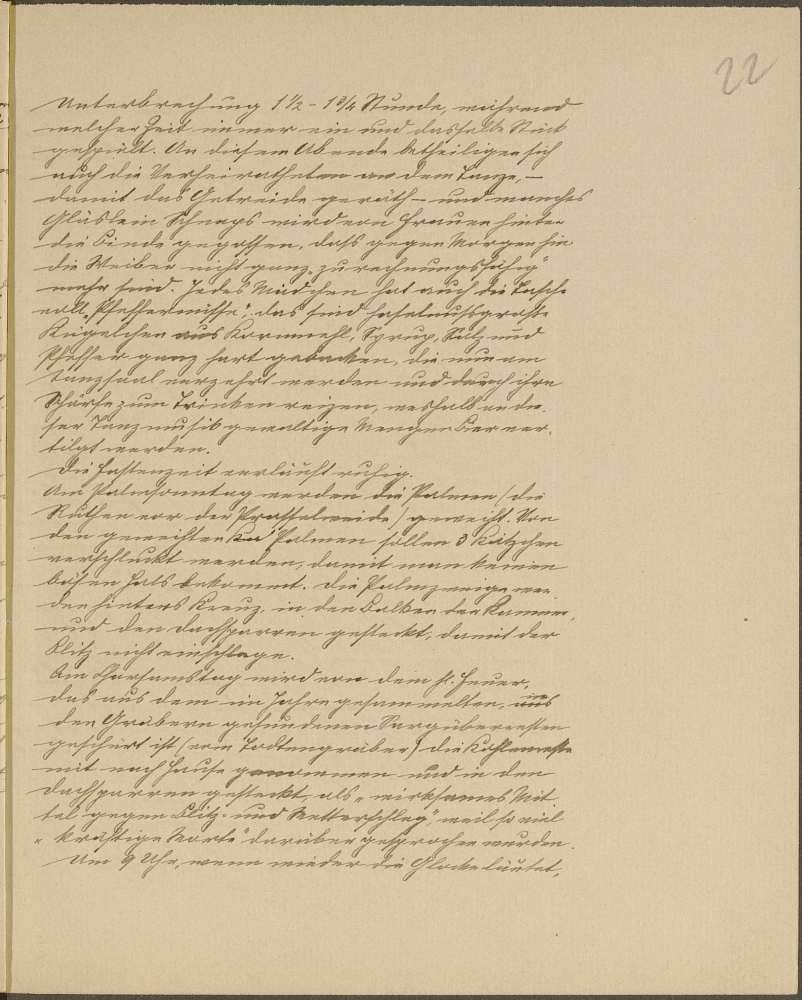 22
Unterbrechung 1½ - 1¾ Stunde, während
welcher Zeit immer ein und dasselbe Stück
gespielt. An diesem Abende betheiligen sich
auch die Verheiratheten an dem Tanze, –
damit das Getreide geräth – und manches
Gläslein Schnaps wird von Frauen hinter
die Binde gegossen, daß gegen Morgen hin
die Weiber nicht ganz „zurechnungsfähig"
mehr sind. Jedes Mädchen hat auch die Tasche
voll „Pfeffernüsse"; das sind haselnußgroße
Kügelchen aus Kornmehl, Syrup, Salz und
Pfeffer ganz hart gebacken, die nun am
Tanzsaal verzehrt werden und durch ihre
Schärfe zum Trinken reizen, weshalb an die-
ser Tanzmusik gewaltige Mengen Bier ver-
tilgt werden.
Die Fastenzeit verläuft ruhig.
Am Palmsonntag werden die Palmen (die
Ruthen von der Prasselweide) geweiht. Von
den geweihten Palmen sollen 3 Kätzchen
verschluckt werden, damit man keinen
bösen Hals bekommt. Die Palmzweige wer-
den hinters Kreuz, in den Balken der Kammer,
und den Dachsparren gesteckt, damit der
Blitz nicht einschlage.
Am Charsamstag wird von dem hl. Feuer,
das aus dem im Jahre gesammelten, aus
den Gräbern gefundenen Sargüberresten
geschürt ist (vom Todtengräber) die Kohlenreste
mit nach Hause genommen und in den
Dachsparren gesteckt, als „wirksames Mit-
tel gegen Blitz- und Wetterschlag", weil so viel
„kräftige Worte" darüber gesprochen wurden.
Um 9 Uhr, wenn wieder die Glocke läutet,